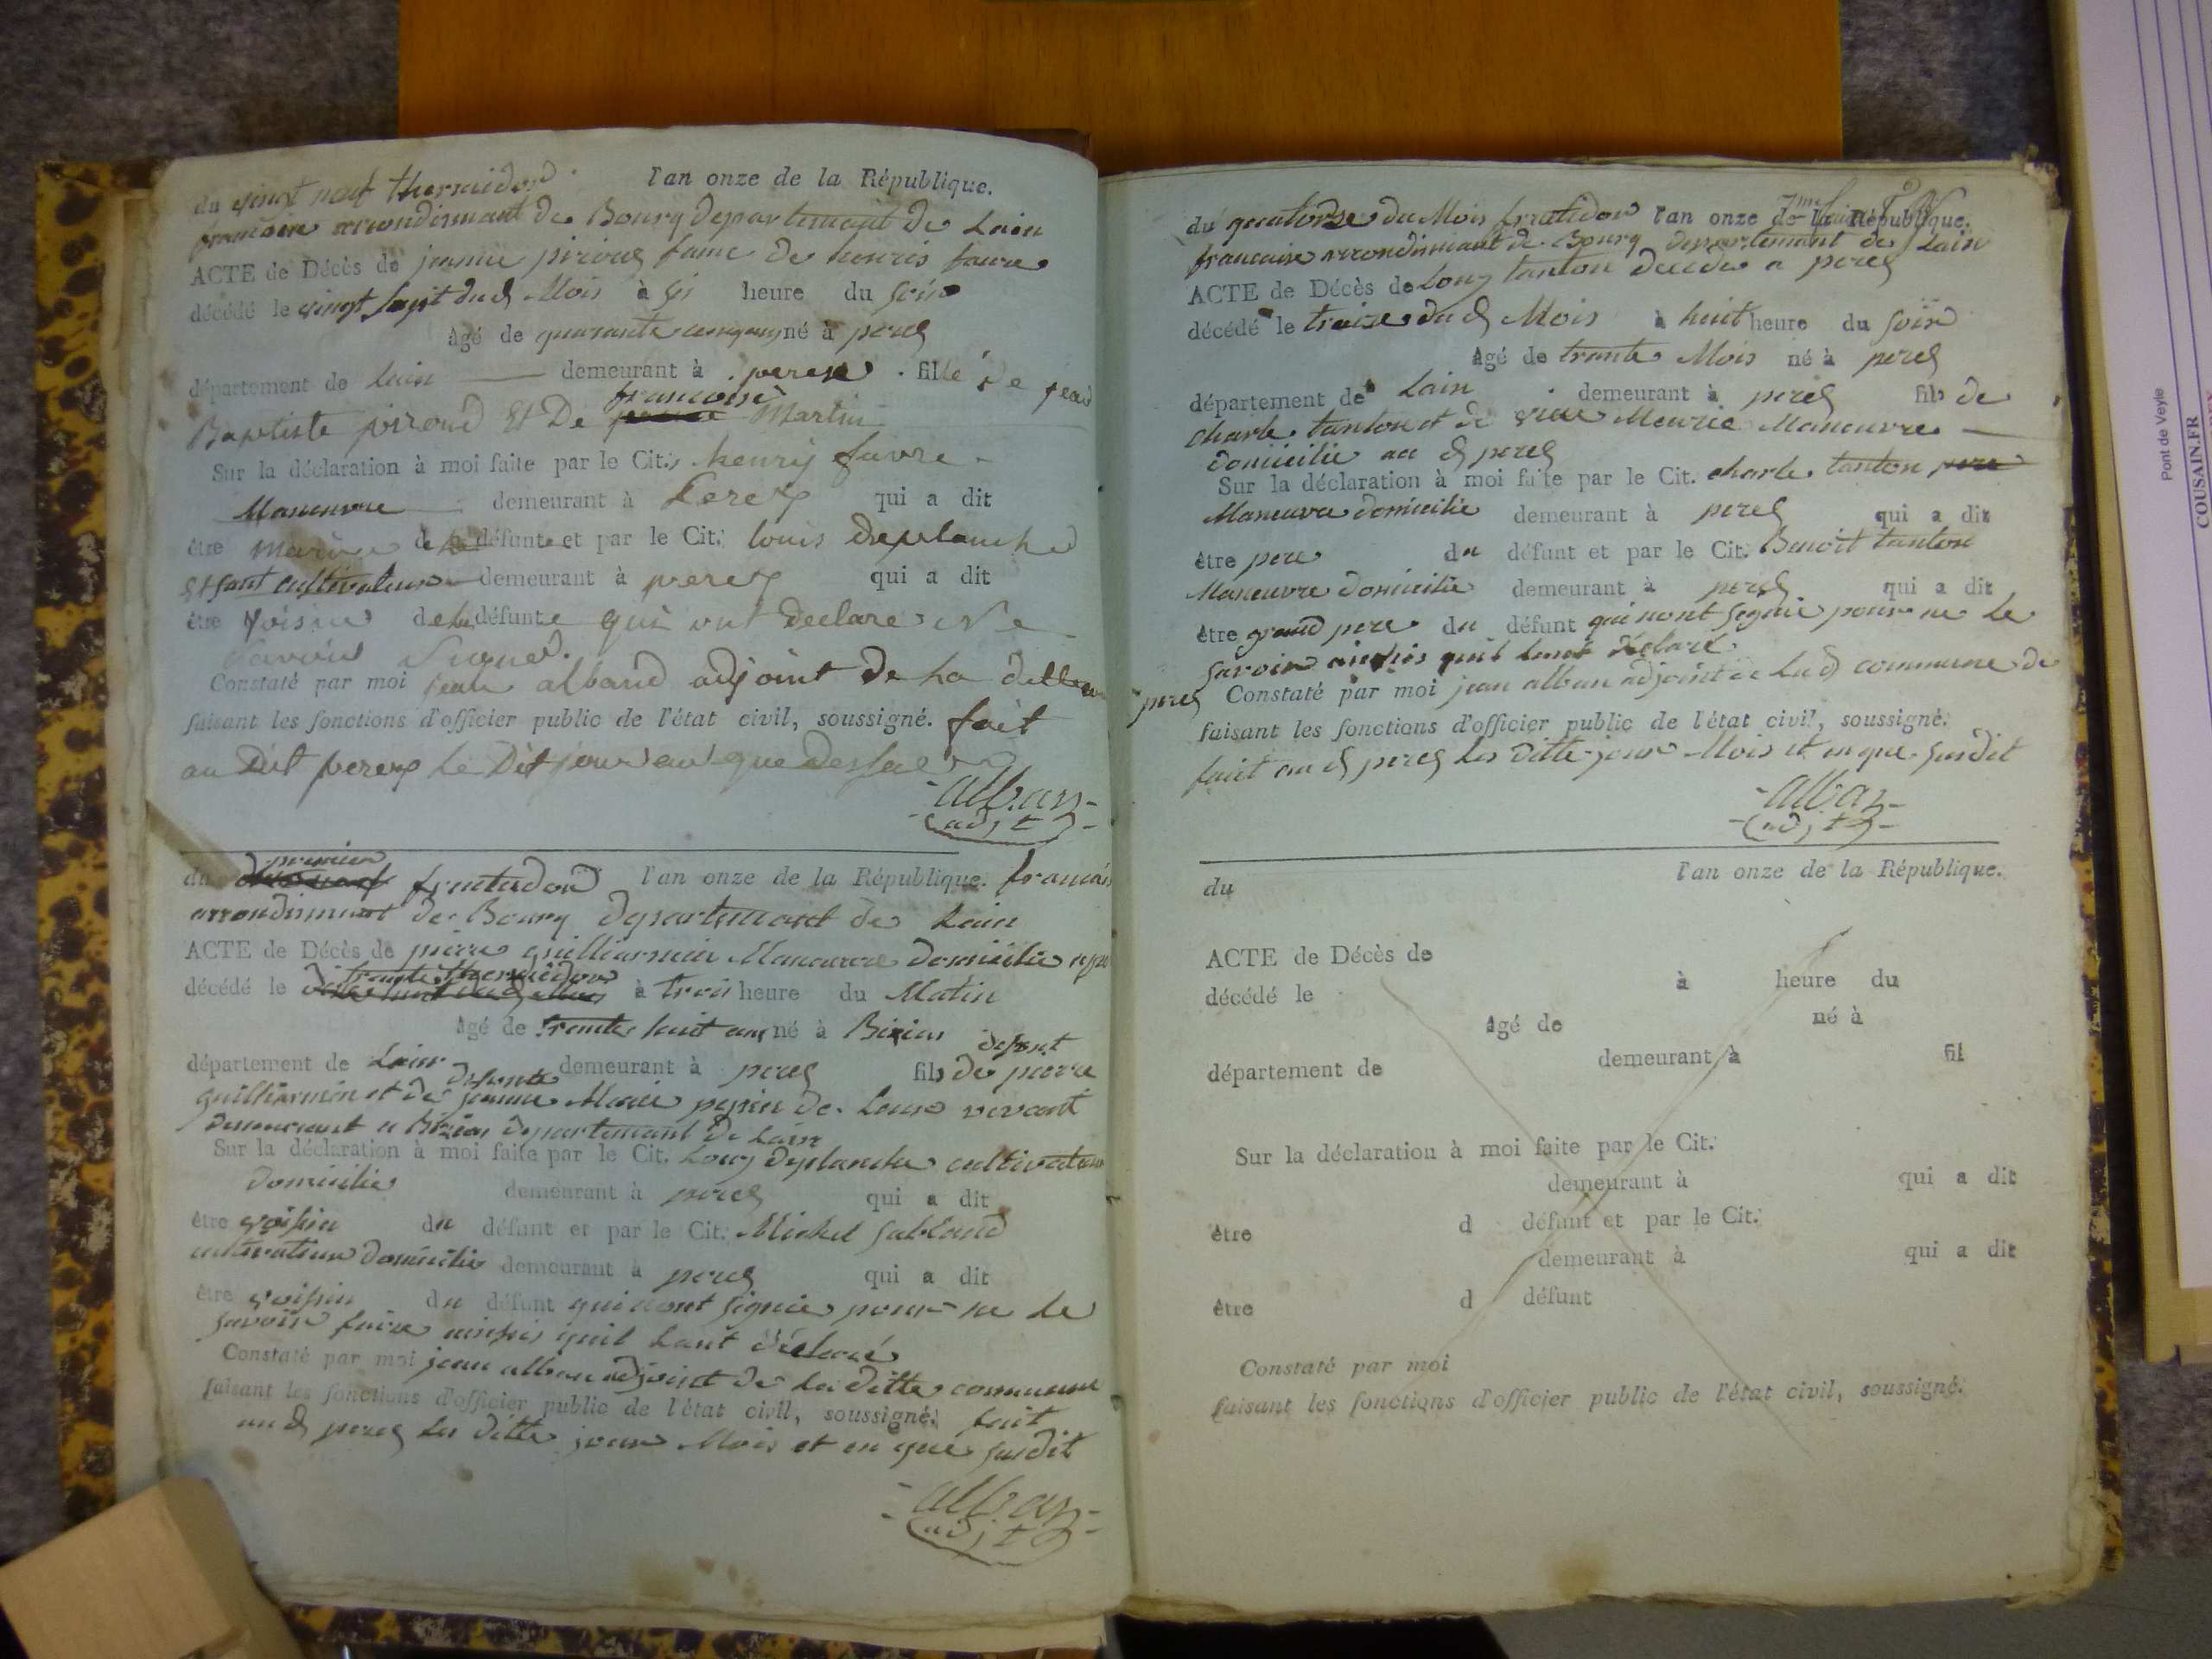 du vingt neuf thermidor l'an onze de la République.
francaire arrondismant de Bourg departemant de Lain
ACTE de Décès de jeanne piroud fame de henris favre
décédé le vingt sept dud Mois à six heure du soir
âgé de quarante cinq ans né à peres
département de lain demeurant à perex fille de jean
Baptiste piroud Et De francoise Martin
Sur la déclaration à moi faite par le Cit. henry favre
Maneuvre demeurant à Perex qui a dit
être de la défunte et par le Cit. louis Deplanche
cultivateur demeurant à perex qui a dit
être voisin de la défunte qui ont declare Ne
savoir Signer.
Constaté par moi jean alband adjoint de la ditte
faisant les fonctions d'officier public de l'état civil, soussigné. fait
au Dit perex le Dit jour an que dessus
alban
adjt
du premier fructudor l'an onze de la République. francais
arrondismant de Bourg departemant de Lain
ACTE de Décès de pierre guilliarmin Maneuvre domicilie
décédé le trante thermidor à trois heure du Matin
âgé de trante huit ans né à Bizias
defunt
département de Lain demeurant à peres fils de pierre
defunte
guilliarmin et de jeanne Marie pepin de leur vivant
demeurant a Bizias departemant de Lain
Sur la déclaration à moi faite par le Cit. Louy deplanche cultivateur
domicilie demeurant à peres qui a dit
être voisin du défunt et par le Cit. Michel Sabland
cultivateur domicilie demeurant à peres qui a dit
être voisin du défunt qui nont signie pour ne le
savoir faire quil lont déclaré
Constaté par moi jean alban adjoint de la ditte commune
faisant les fonctions d'officier public de l'état civil, soussigné. fait
au d peres les ditte jour Mois et en que susdit
alban
adjt
du quatorse du Mois frutidor l'an onze de la République.
francaise arrondismant de Bourg departemant de Lain
ACTE de Décès de Louy tanton decede a peres
décédé le traise du d Mois à huit heure du soir
âgé de trante Mois né à peres
département de Lain demeurant à peres fils de
charle tanton et de Meurie Maneuvre
domicilie au d peres
Sur la déclaration à moi faite par le Cit. charle tanton
Maneuvre domicilie demeurant à peres qui a dit
être pere du défunt et par le Cit. Benoit tanton
Maneuvre domicilie demeurant à peres qui a dit
être grand pere du défunt qui nont signie pour ne le
savoir quil lont déclaré
peres Constaté par moi jean alban adjoint de la d commune de
faisant les fonctions d'officier public de l'état civil, soussigné.
fait au d peres les ditte jour Mois et en que susdit
alban
adjt
du l'an onze de la République.
ACTE de Décès de
décédé le à heure du
âgé de né à
département de demeurant à fil
Sur la déclaration à moi faite par le Cit.
demeurant à qui a dit
être d défunt et par le Cit.
demeurant à qui a dit
être d défunt
Constaté par moi
faisant les fonctions d'officier public de l'état civil, soussigné.
Pont de Veyle
COUSAIN.FR